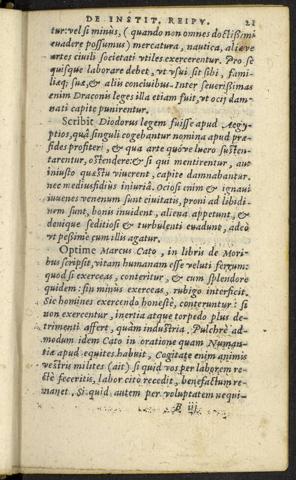 DE INSTIT. REIPV. 21
tur: vel si minùs, (quando non omnes doctissimi
euadere possumus) mercatura, nautica, aliáve
artes ciuili societati vtiles exercerentur. Pro se
quisque laborare debet, vt vsui sit sibi, fami-
liæq; suæ, & aliis conciuibus. Inter seuerissimas
enim Draconis leges illa etiam fuit, vt ocij dam-
nati capite punirentur.
Scribit Diodorus legem fuisse apud Aegy-
ptios, quâ singuli cogebantur nomina apud præ-
sides profiteri, & qua arte quóve lucro susten-
tarentur, ostendere: & si qui mentirentur, aut
iniusto quæstu viuerent, capite damnabantur.
nec mediusfidius iniuriâ. Ociosi enim & ignaui
iuuenes venenum sunt ciuitatis, proni ad libidi-
nem sunt, bonis inuident, aliena appetunt, &
denique seditiosi & turbulenti euadunt, adeò
vt pessimè cum illis agatur.
Optime Marcus Cato, in libris de Mori-
bus scripsit, vitam humanam esse veluti ferrum:
quod si exerceas, conteritur, & cum splendore
quidem: sin minùs exerceas, rubigo interficit.
Sic homines exercendo honestè, conteruntur: si
non exercentur, inertia atque torpedo plus de-
trimenti affert, quàm industria. Pulchrè ad-
modum idem Cato in oratione quam Numan-
tiæ apud equites habuit, Cogitate enim animis
vestris milites (ait) si quid vos per laborem re-
ctè feceritis, labor citò recedit, benefactum re-
manet, Si quid autem per voluptatem nequi-
E iij